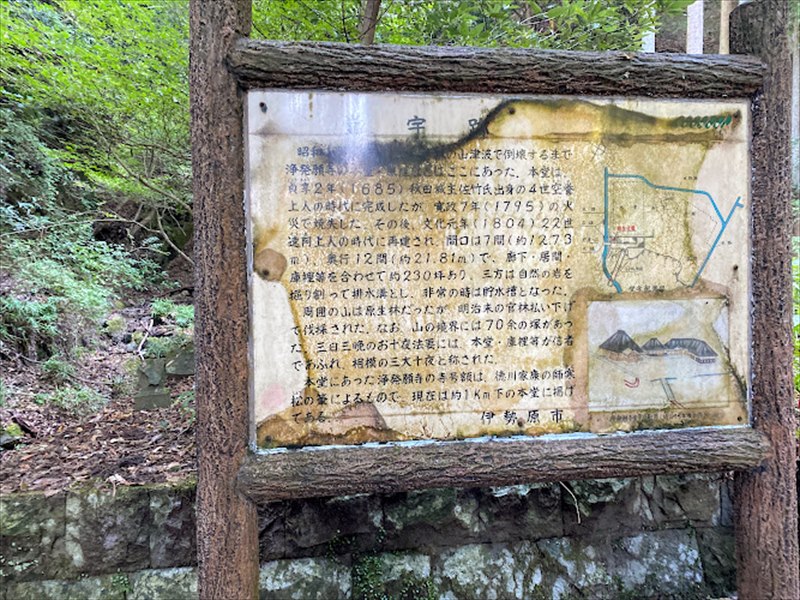 宇
昭和 の山津波で倒壊するまで
浄発願寺の はここにあった。本堂は、
貞享2年(1685)秋田城主佐竹氏出身の4世空誉
上人の時代に完成したが、寛政7年(1795)の火
災で焼失した。その後、文化元年(1804)22世
上人の時代に再建され、間口は7間(約12.73
m)、奥行12間(約21.81m)で、廊下・居間
庫裡等を合わせて約230坪あり、三方は自然の岩を
掘り割って排水溝とし、非常の時は貯水槽となった。
周囲の山は原生林だったが、明治末の官林払い下げ
で伐採された。なお、山の境界には70余の塚があっ
た。三日三晩のお十夜法要には、本堂・庫裡等が信者
であふれ、相模の三大十夜と称された。
本堂にあった浄発願寺の寺号額は、徳川家康の師寒
松の筆によるもので、現在は約1Km下の本堂に掲げ
てある。
伊勢原市